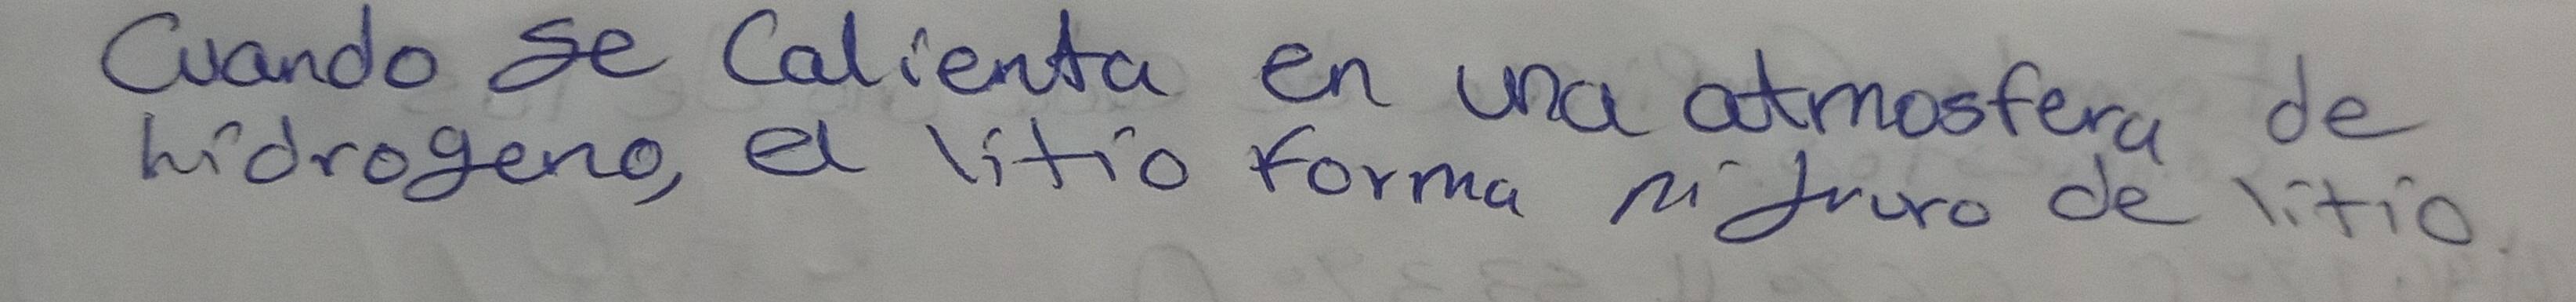 Cuando se Calienta en una atmosfera de
hidrogeno, el litio forma nitruro de litio.